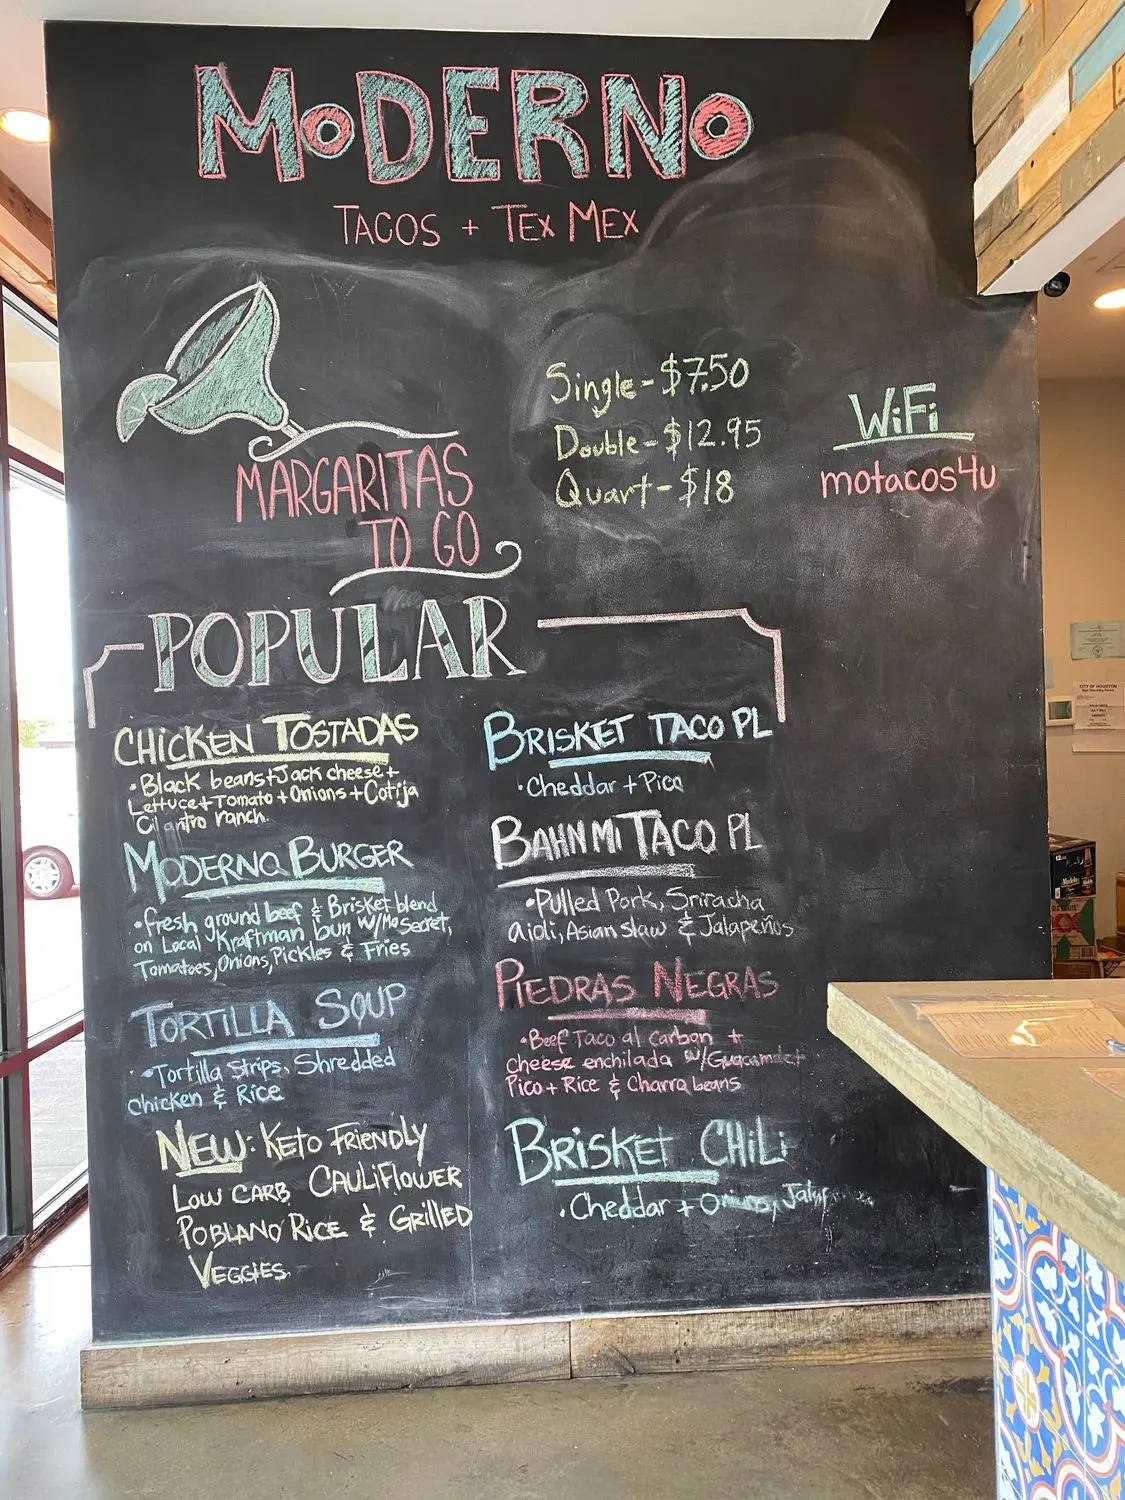 MODERNO
TACOS + TEX MEX
MARGARITAS
TO GO
Single - $7.50
Double - $12.95
Quart - $18
WiFi
motacos4u
POPULAR
CHICKEN TOSTADAS
• Black beans + Jack cheese +
Lettuce + Tomato + Onions + Cotija
Cilantro ranch.
MODERNO BURGER
• fresh ground beef & Brisket blend
on Local Kraftman bun w/ Mo secret,
Tomatoes, Onions, Pickles & Fries
TORTILLA SOUP
• Tortilla Strips, Shredded
Chicken & Rice
NEW: KETO FRIENDLY
LOW CARB CAULIFLOWER
POBLANO RICE & GRILLED
VEGGIES.
BRISKET TACO PL
• Cheddar + Pico
BAHN MI TACO PL
• Pulled Pork, Sriracha
aioli, Asian slaw & Jalapeños
PIEDRAS NEGRAS
• Beef Taco al carbon +
cheese enchilada w/
Pico + Rice & Charro beans
BRISKET CHILI
• Cheddar + Onions,
CITY OF HOUSTON